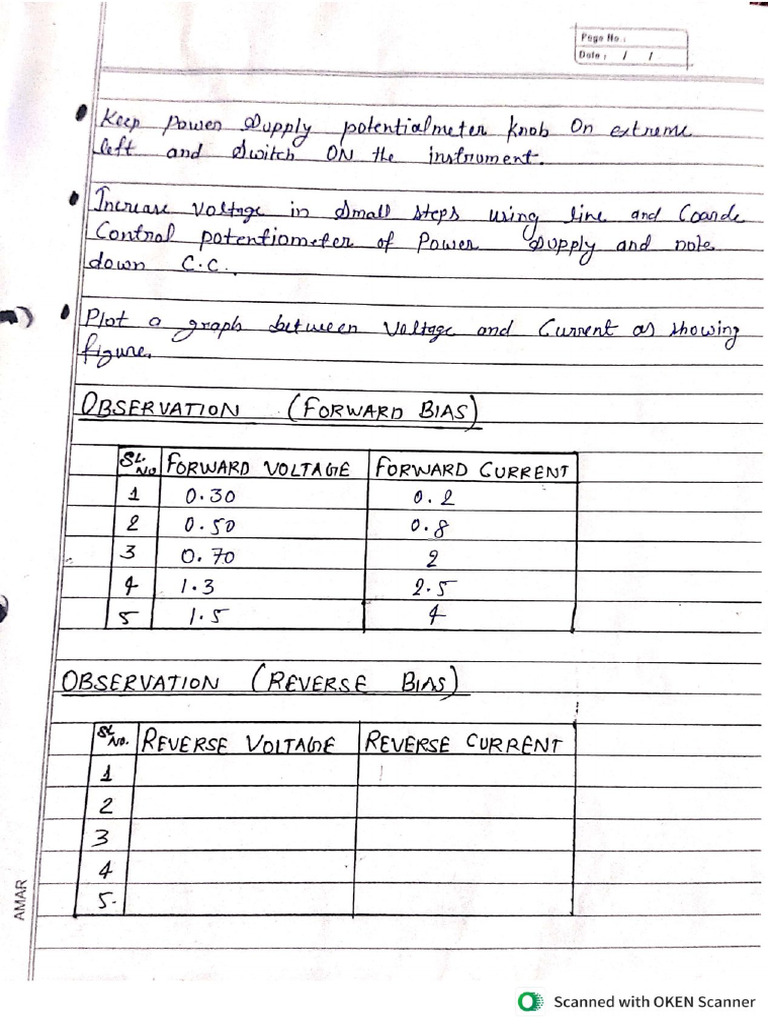 Page No.:
Date: / /
Keep Power Supply potentialmeter knob On extreme
left and Switch ON the instrument.
Increase Voltage in Small steps using line and Coarde
Control potentiometer of Power Supply and note
down C.C.
Plot a graph between Voltage and Current as showing
figure.
OBSERVATION (FORWARD BIAS)
SL. NO FORWARD VOLTAGE FORWARD CURRENT
1 0.30 0.2
2 0.50 0.8
3 0.70 2
4 1.3 2.5
5 1.5 4
OBSERVATION (REVERSE BIAS)
SL NO. REVERSE VOLTAGE REVERSE CURRENT
1
2
3
4
5.
AMAR
Scanned with OKEN Scanner